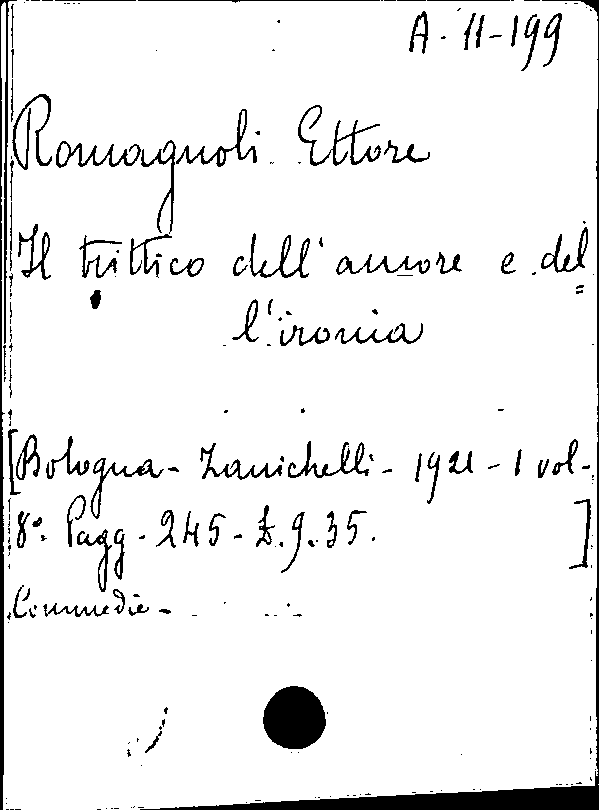 A. 11-199
Romagnoli Ettore
Il trittico dell'amore e del
l'ironia
[Bologna - Zanichelli - 1921 - 1 vol-
8°. Pagg - 245 - £.9.35. ]
Commedie -